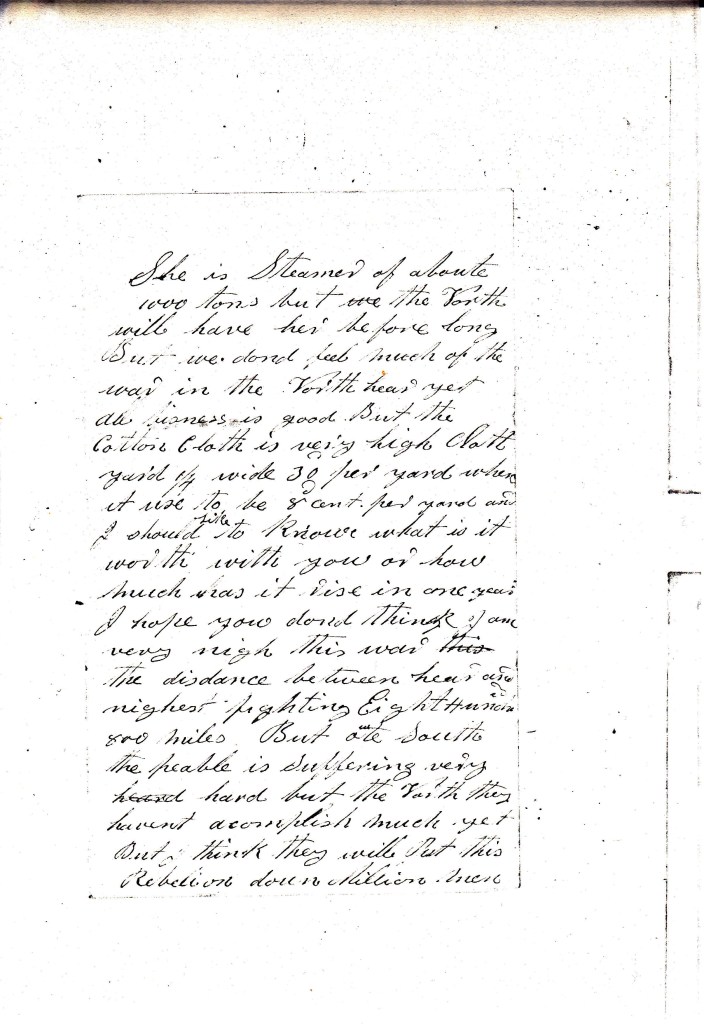 She is Steamer of aboute
1000 tons but we the North
will have her before long
But we dond feel much of the
war in the North hear yet
all bisness is good But the
Cotton Cloth is very high Cloth
yard 1/4 wide 30 per yard when
it use to be 8 cent. per yard and
I should like to Know what is it
worth with you or how
much has it rise in one year
I hope you dond think I am
very nigh this war this
the disdance between hear and
nighest fighting Eight Hundred
800 miles But out South
the peable is suffering very
heard hard but the North they
havent acomplish much yet
But I think they will Put this
Rebelion down Million Men